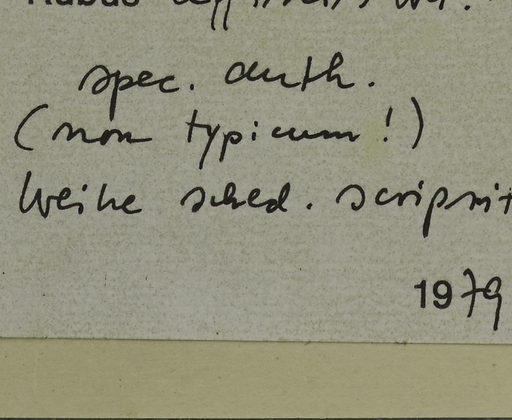 Rubus affinis
spec. auth.
(non typicum!)
Weihe sched. scripsit
1979